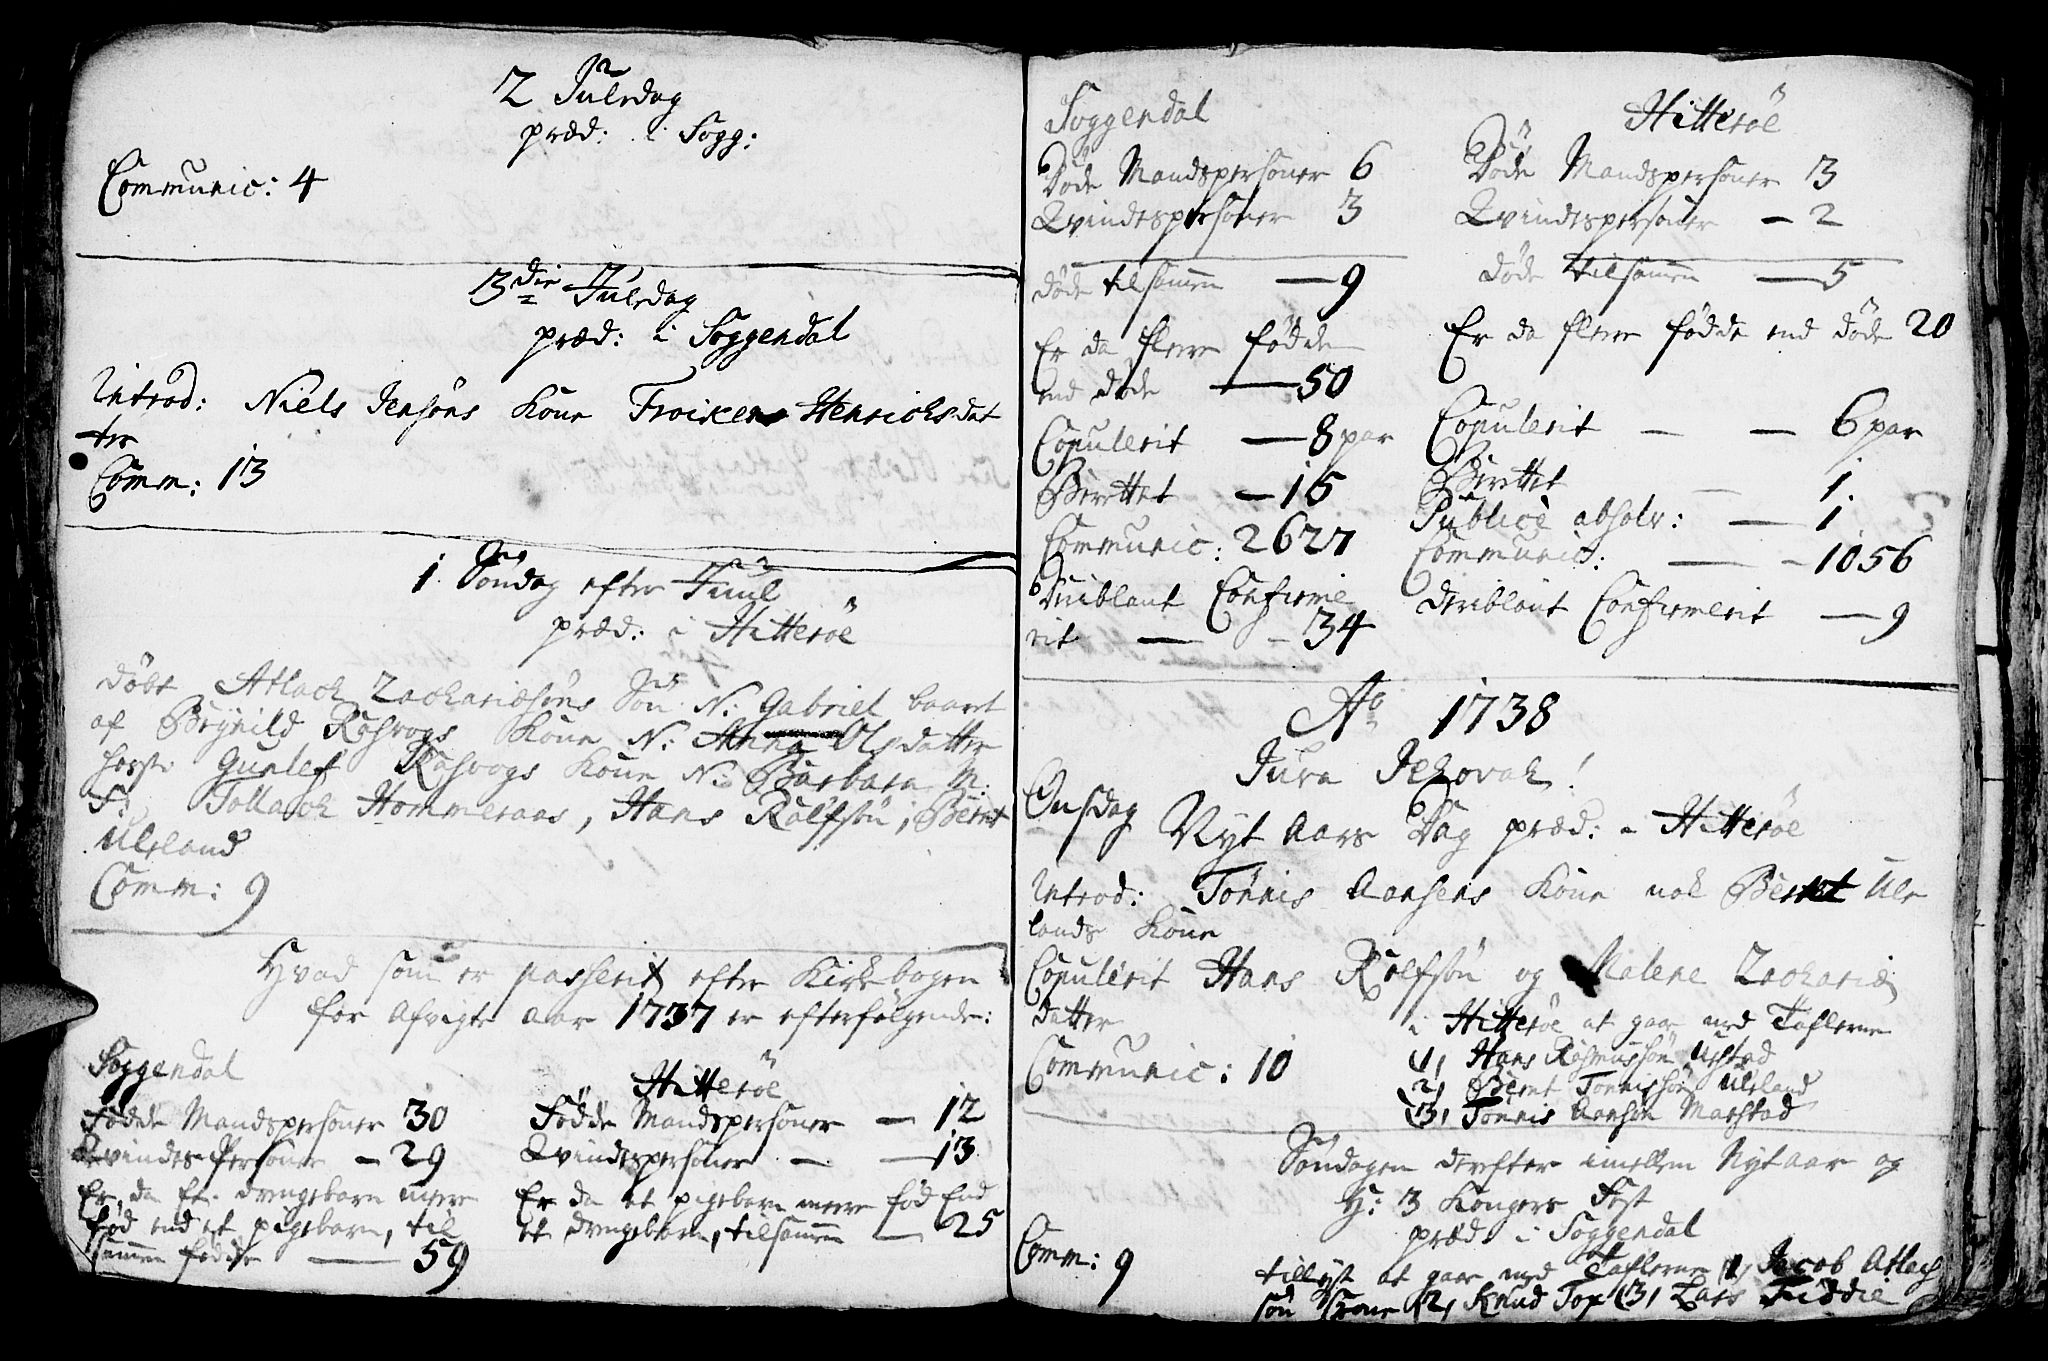 2 Juledag
præd: i Sogg:
Communic: 4
3die Juledag
præd: i Soggendal
Introd: Niels Jensøns Kone Froiken Henrichsdat
ter
Comm: 13
1 Søndag efter Juul
præd: i Hitterøe
døbt Atlach Zachariæsøns Søn N: Gabriel baaret
af Brynild Rosvogs Kone N: Anna Olsdatter
hosst: Gunlef Rosvogs Kone N: Barbara M.
F: Tollach Hommeraas, Hans Rolfsøn, Bernt
Uleland
Comm: 9
Hvad som er passerit efter Kirkebogen
for afvigte aar 1737 er efterfølgende:
Soggendal
Fødde Mandspersoner 30
Qvindes Personer - 29
Er da Et drengebarn mere
fød end et pigebarn, til
sammen fødde — 59
Hitterøe
Fødde Mandspersoner — 12
Qvindespersoner — 13
Er da et pigebarn mere fød End
et drengebarn, tilsammen — 25
Soggendal
Døde Mandspersoner 6
Qvindespersoner 3
døde tilsamen — 9
Er da flere fødde
end døde — 50
Copulerit — 8 par
Berettet — 15
Communic: 2627
Deriblant Confirme
rit — 34
Hitterøe
Døde Mandspersoner 3
Qvindespersoner — 2
Døde tilsamen — 5
Er da flere fødde end døde 20
Copulerit — — 6 par
Berettet — 1.
Publicè absolv: — 1
Communic: — 1056
deriblant Confirmerit — 9
Ao 1738
Juva Jehovah!
Onsdag Nyt Aars Dag præd: i Hitterøe
Introd: Tønnis Aansens Kone nok Bernt Ule
lands Kone
Copulerit Hans Rolfsøn og Malene Zachariæ
datter
i Hitterøe at gaae med Taflerne
Communic: 10
(1, Hans Rasmussøn Ustad
(2, Bernt Tønnissøn Uleland
(3, Tønnis Aansøn Marstad
Søndagen derefter imellem Nytaar og
H: 3 Kongers Fest
præd: i Soggendal
Comm: 9
tillyst at gaae med Taflerne (1, Jacob Atlach
søn (2, Knud Top (3, Lars Fiddie